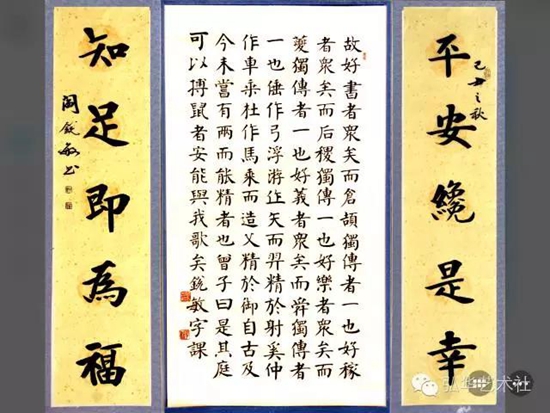 平安纔是幸
己丑之秋
故好書者衆矣而倉頡獨傳者一也好稼
者衆矣而后稷獨傳一也好樂者衆矣而
夔獨傳者一也好義者衆矣而舜獨傳者
一也倕作弓浮游作矢而羿精於射奚仲
作車乘杜作馬乘而造父精於御自古及
今未嘗有兩而能精者也曾子曰是其庭
可以搏鼠者安能與我歌矣銳敏字課
知足即為福
銳敏书
艺术社